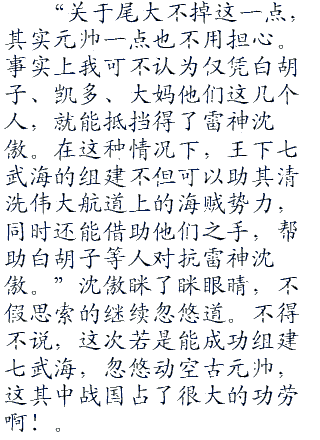 “关于尾大不掉这一点，
其实元帅一点也不用担心。
事实上我可不认为仅凭白胡
子、凯多、大妈他们这几个
人，就能抵挡得了雷神沈
傲。在这种情况下，王下七
武海的组建不但可以助其清
洗伟大航道上的海贼势力，
同时还能借助他们之手，帮
助白胡子等人对抗雷神沈
傲。”沈傲眯了眯眼睛，不
假思索的继续忽悠道。不得
不说，这次若是能成功组建
七武海，忽悠动空古元帅，
这其中战国占了很大的功劳
啊！。